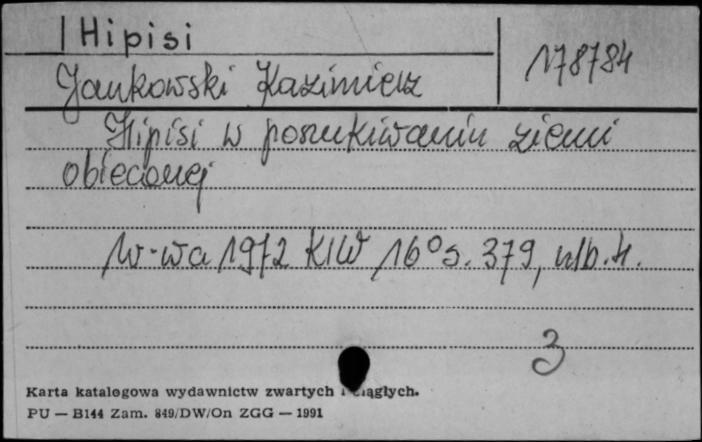 Hipisi
178784
Jankowski Kazimierz
Hipisi w poszukiwaniu ziemi
obiecanej
W-wa 1972 KIW 16° s. 379, nlb. 4.
3
Karta katalogowa wydawnictw zwartych i ciągłych.
PU — B144 Zam. 849/DW/On ZGG — 1991